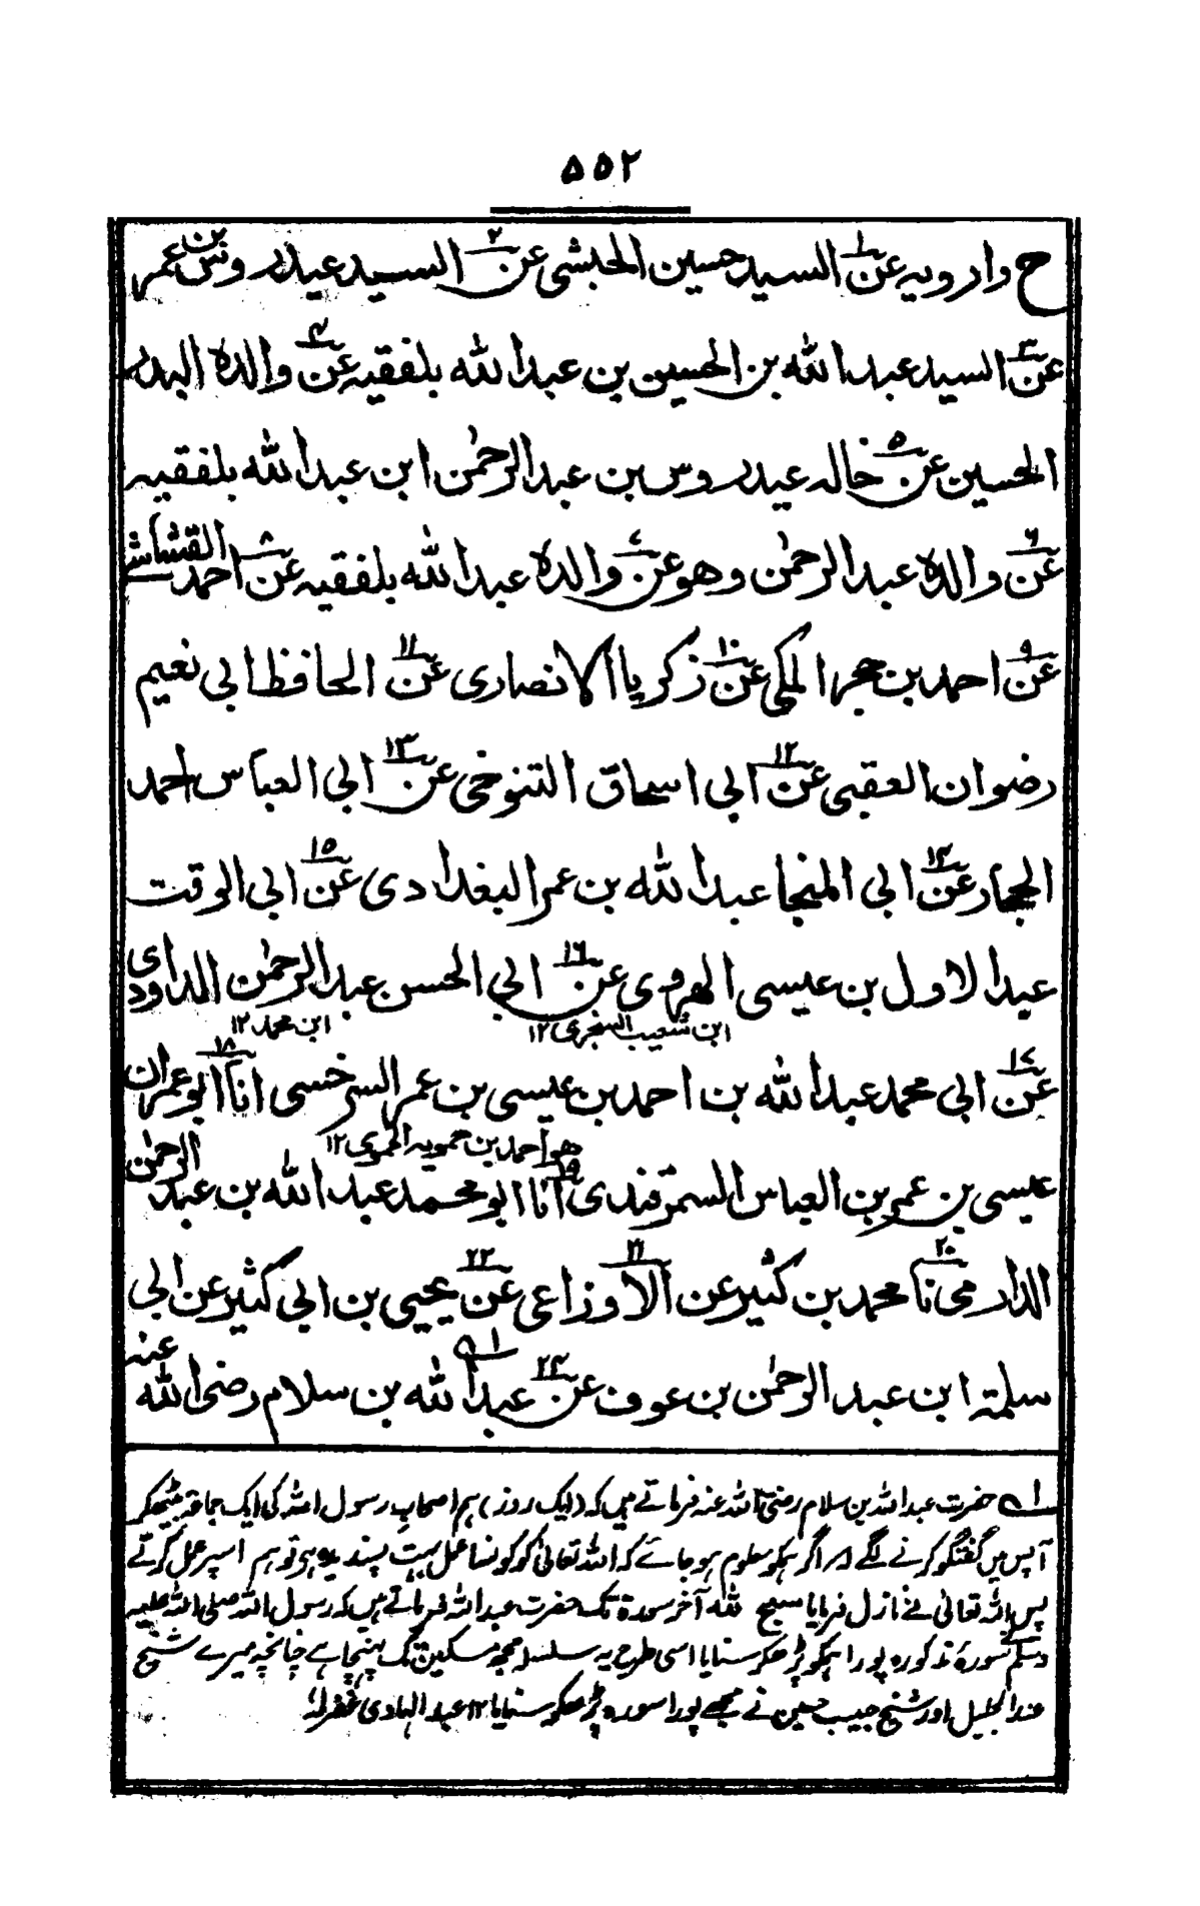 ۵۵۲
ح وارویه عن ۱ السید حسین الحبشی عن ۲ السید عیدروس بن عمر
عن ۳ السید عبد الله بن الحسین بن عبد الله بلفقیه عن ۴ والده البدر
الحسین عن ۵ خاله عیدروس بن عبد الرحمٰن ابن عبد الله بلفقیه
عن ۶ والده عبد الرحمٰن وهو عن ۷ والده عبد الله بلفقیه عن ۸ احمد القشاشی
عن ۹ احمد بن حجر المکی عن ۱۰ زکریا الانصاری عن ۱۱ الحافظ ابی نعیم
رضوان العقبی عن ۱۲ ابی اسحاق التنوخی عن ۱۳ ابی العباس احمد
الحجار عن ۱۴ ابی المنجا عبد الله بن عمر البغدادی عن ۱۵ ابی الوقت
عبد الاول بن عیسی الهروی عن ۱۶ ابی الحسن عبد الرحمٰن الداودی
ابن شعیب السنجری ۱۲ ابن محمد ۱۲
عن ۱۷ ابی محمد عبد الله بن احمد بن عیسی بن عمر السرخسی انا ۱۸ ابو عمران
هو احمد بن حمویه الحموی ۱۲
عیسی بن عمر بن العباس السمرقندی انا ۱۹ ابو محمد عبد الله بن عبد الرحمٰن
الدارمی نا ۲۰ محمد بن کثیر عن ۲۱ الاوزاعی عن ۲۲ یحیی بن ابی کثیر عن ابی
سلمة ابن عبد الرحمٰن بن عوف عن ۲۳ عبد الله بن سلام رضی الله عنه
۱ حضرت عبد اللہ بن سلام رضی اللہ عنہ فرماتے ہیں کہ (ایک روز) ہم اصحابِ رسول اللہ کی ایک جماعۃ بیٹھکر
آپس میں گفتگو کرنے لگے اور اگر ہمکو معلوم ہو جائے کہ اللہ تعالیٰ کو کونسا عمل بہت پسندیدہ ہے تو ہم اسپر عمل کرتے
پس اللہ تعالیٰ نے نازل فرمایا سبح للہ آخر سورۃ تک حضرت عبد اللہ فرماتے ہیں کہ رسول اللہ صلی اللہ علیہ
وسلم نے سورۂ مذکورہ پورا ہمکو پڑھکر سنایا اسی طرح یہ سلسلہ مجھ مسکین تک پہنچا ہے چنانچہ میرے شیخ
عبد الجلیل اور شیخ حبیب حسین نے مجھے پورا سورہ پڑھکر سنایا ۱۲ عبد الہادی غفرلہٗ